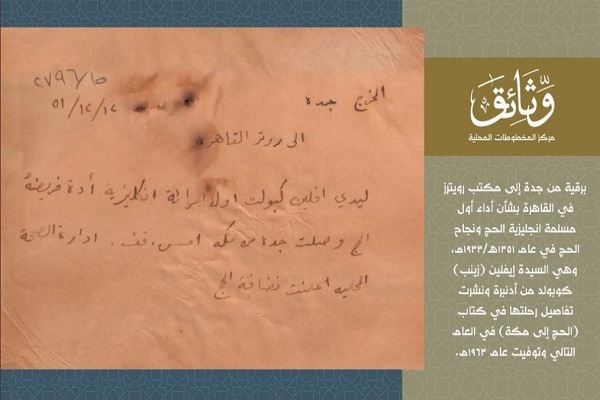 ٢٧٩٦/١٥
المخرج جده
٥١/١٢/١٢
الى روتر القاهره
ليدي افلين كبولت اول امرائة انكليزية أدة فريضة
الحج وصلت جدة من مكه امس . قف . ادارة الصحة
المحليه اعلنت نضافة الحج
وثائق
مركز المخطوطات المحلية
برقية من جدة إلى مكتب رويترز
في القاهرة بشأن أداء أول
مسلمة انجليزية الحج ونجاح
الحج في عام ١٣٥١هـ/١٩٣٣م،
وهي السيدة إيفلين (زينب)
كوبولد من أدنبرة ونشرت
تفاصيل رحلتها في كتاب
(الحج إلى مكة) في العام
التالي وتوفيت عام ١٩٦٣م.